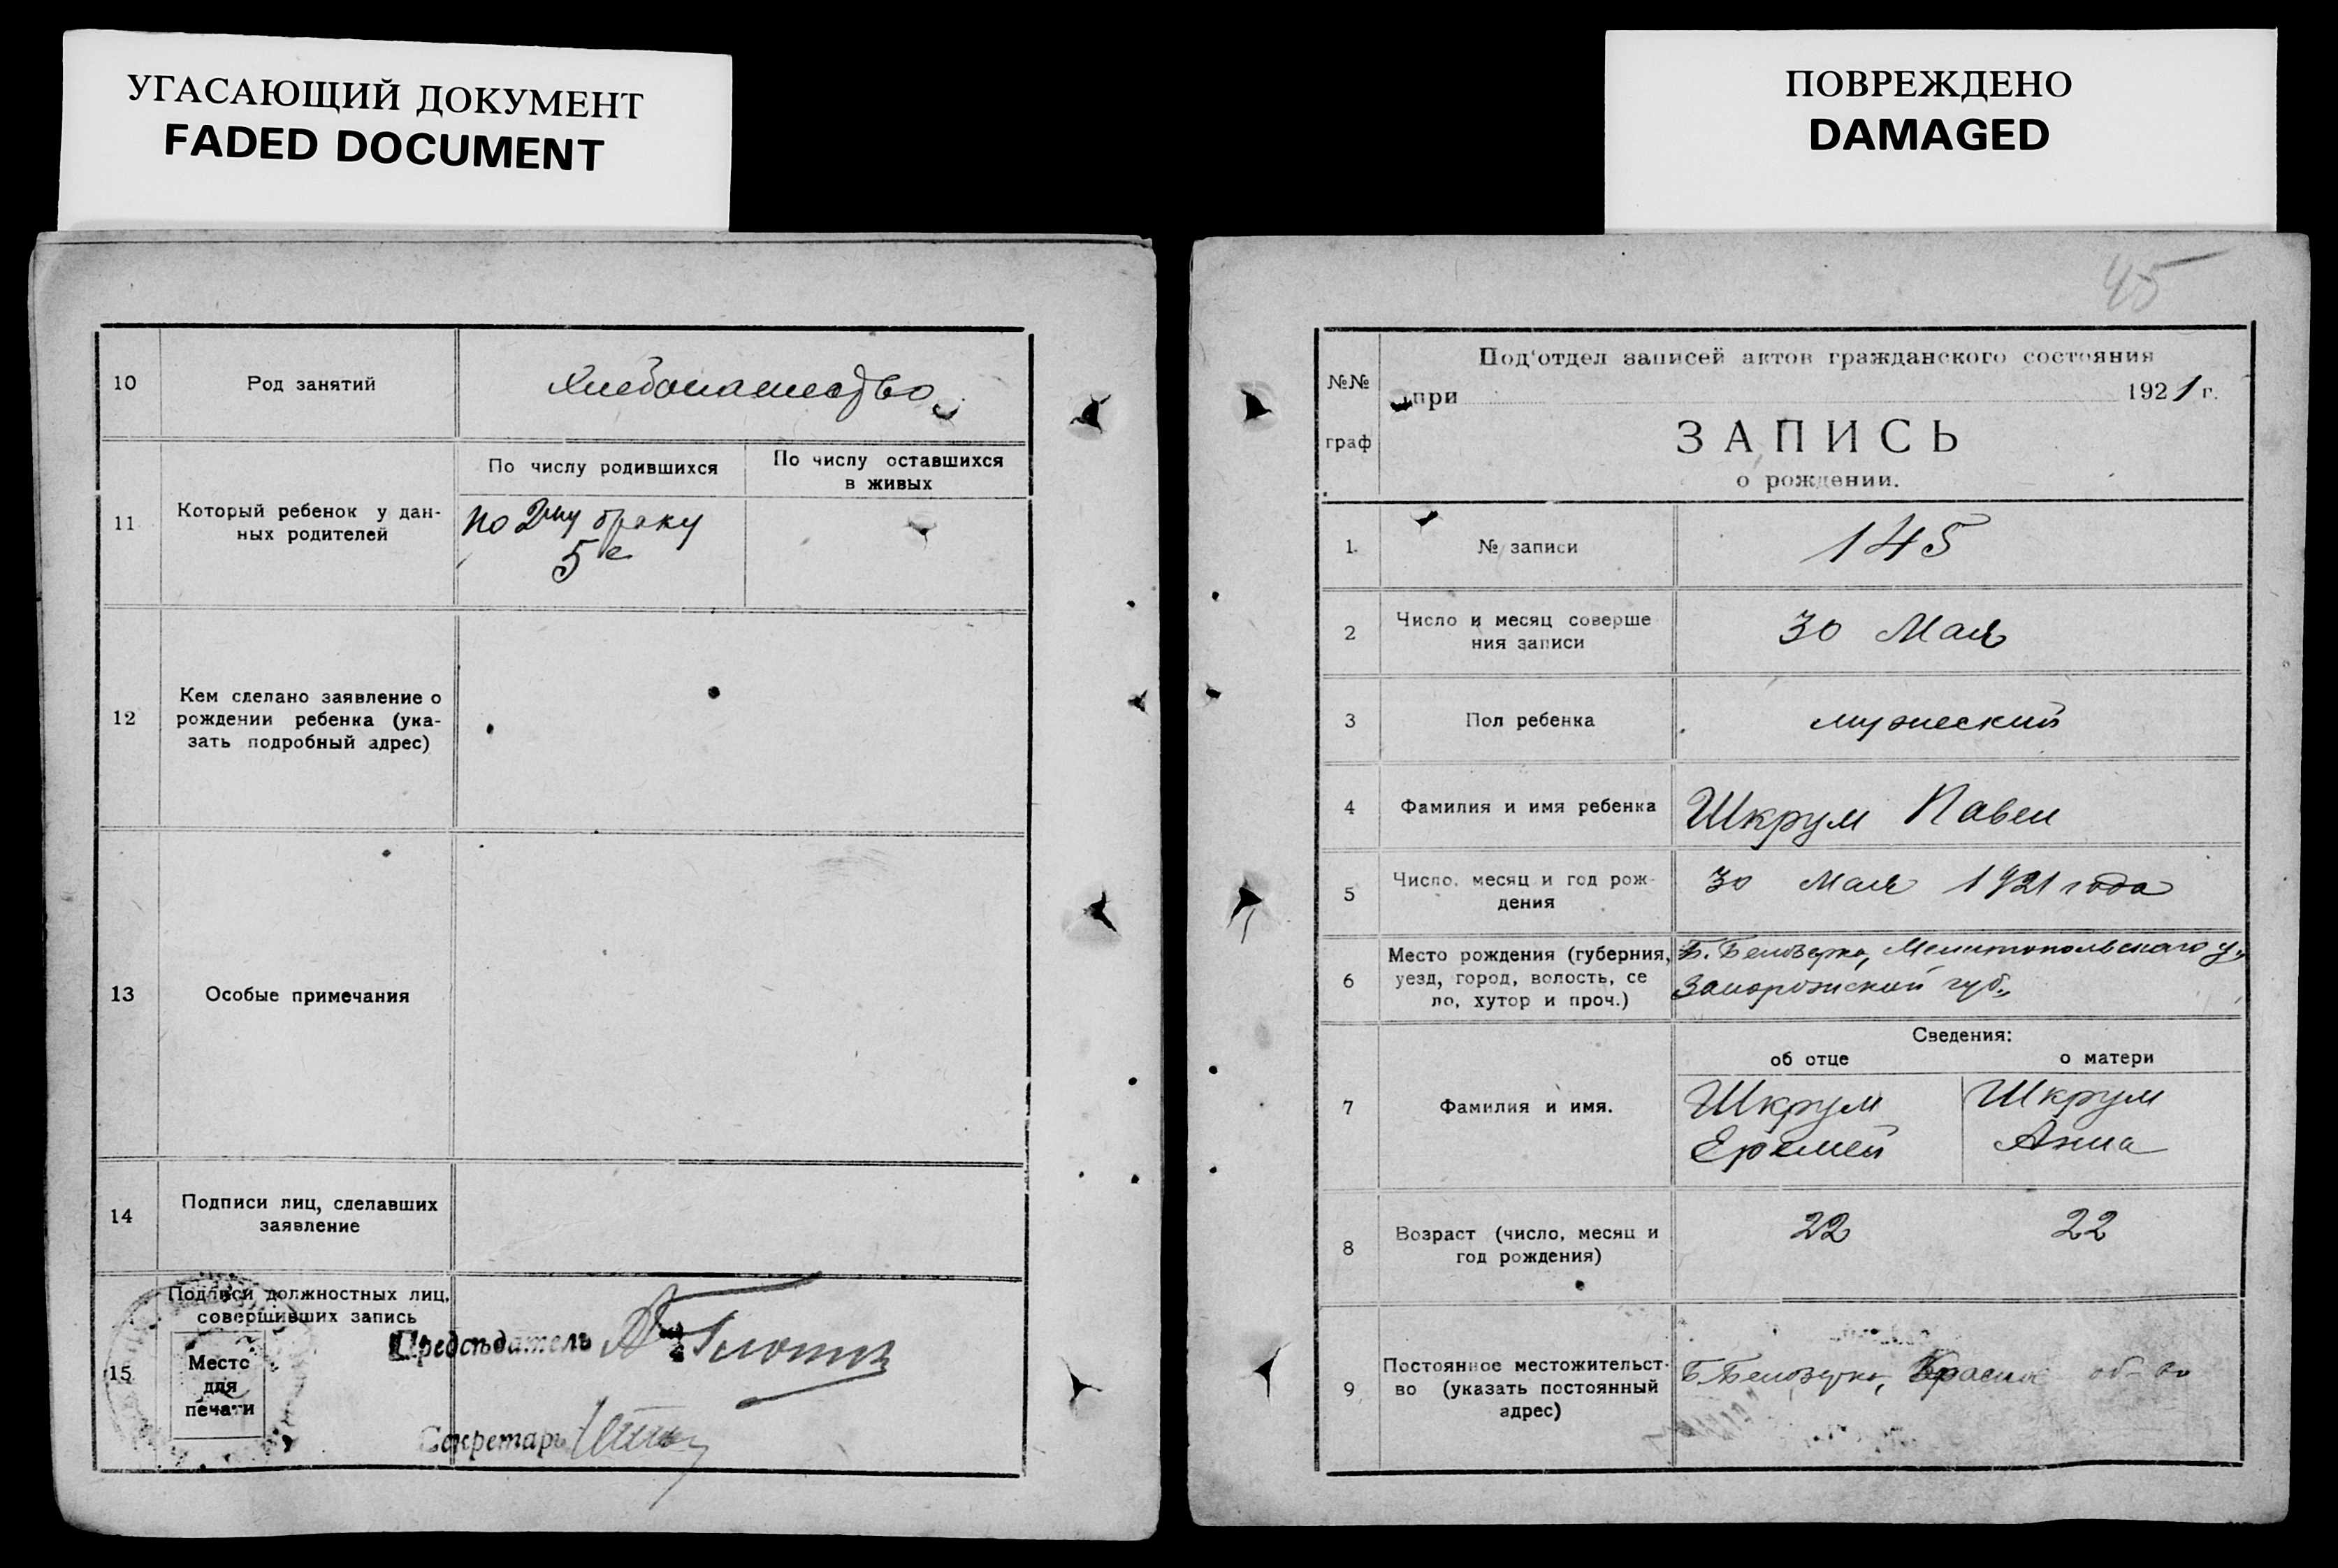 УГАСАЮЩИЙ ДОКУМЕНТ
FADED DOCUMENT
10
Род занятий
Хлебопашество
11
Который ребенок у дан-
ных родителей
По числу родившихся
По числу оставшихся
в живых
по 2му браку
5е
12
Кем сделано заявление о
рождении ребенка (ука-
зать подробный адрес)
13
Особые примечания
14
Подписи лиц, сделавших
заявление
15
Подписи должностных лиц,
совершивших запись
Место
для
печати
Председатель
Секретарь
ПОВРЕЖДЕНО
DAMAGED
45
№№
граф
Под'отдел записей актов гражданского состояния
при
1921 г.
ЗАПИСЬ
о рождении.
1.
№ записи
145
2
Число и месяц соверше
ния записи
30 Мая
3
Пол ребенка
мужеский
4
Фамилия и имя ребенка
Шкрум Павел
5
Число, месяц и год рож-
дения
30 Мая 1921 года
6
Место рождения (губерния,
уезд, город, волость, се
ло, хутор и проч.)
Б. Белозерка, Мелитопольскаго у.,
Запорожской губ.,
Сведения:
об отце
о матери
7
Фамилия и имя.
Шкрум
Еремей
Шкрум
Анна
8
Возраст (число, месяц и
год рождения)
22
22
9
Постоянное местожительст-
во (указать постоянный
адрес)
Б. Белозерка, об-во